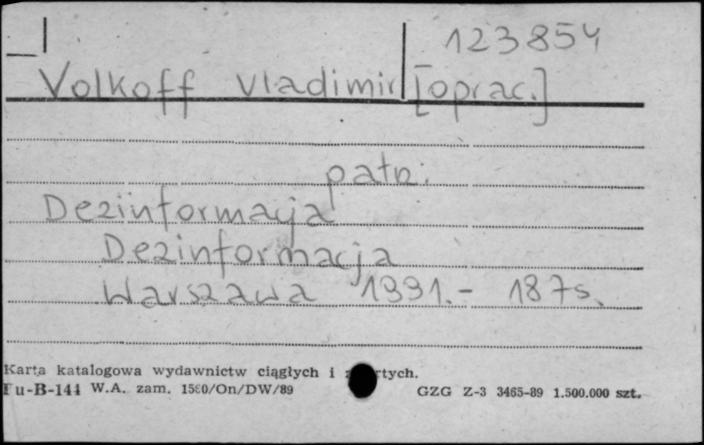 123854
Volkoff Vladimir [oprac.]
patrz:
Dezinformacja
Dezinformacja
Warszawa 1991.- 187s.
Karta katalogowa wydawnictw ciągłych i
Pu-B-144 W.A. zam. 1560/On/DW/89 GZG Z-3 3465-89 1.500.000 szt.